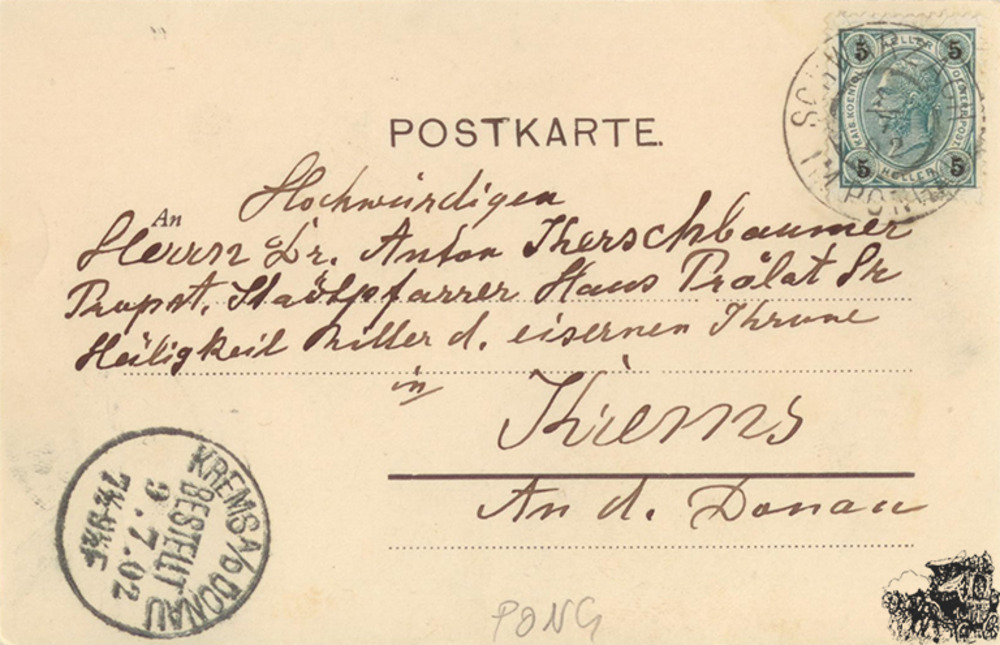 POSTKARTE.
5 HELLER 5
KAIS. KOENIGL. OESTERR. POST.
5 HELLER 5
IM PONGAU
An
Hochwürdigen
Herrn Dr. Anton Kerschbaumer
Propst, Stadtpfarrer Haus Prälat Sr
Heiligkeit Ritter d. eisernen Throne
in
Krems
An d. Donau
KREMS A/D DONAU
BESTELLT
9.7.02
PONG